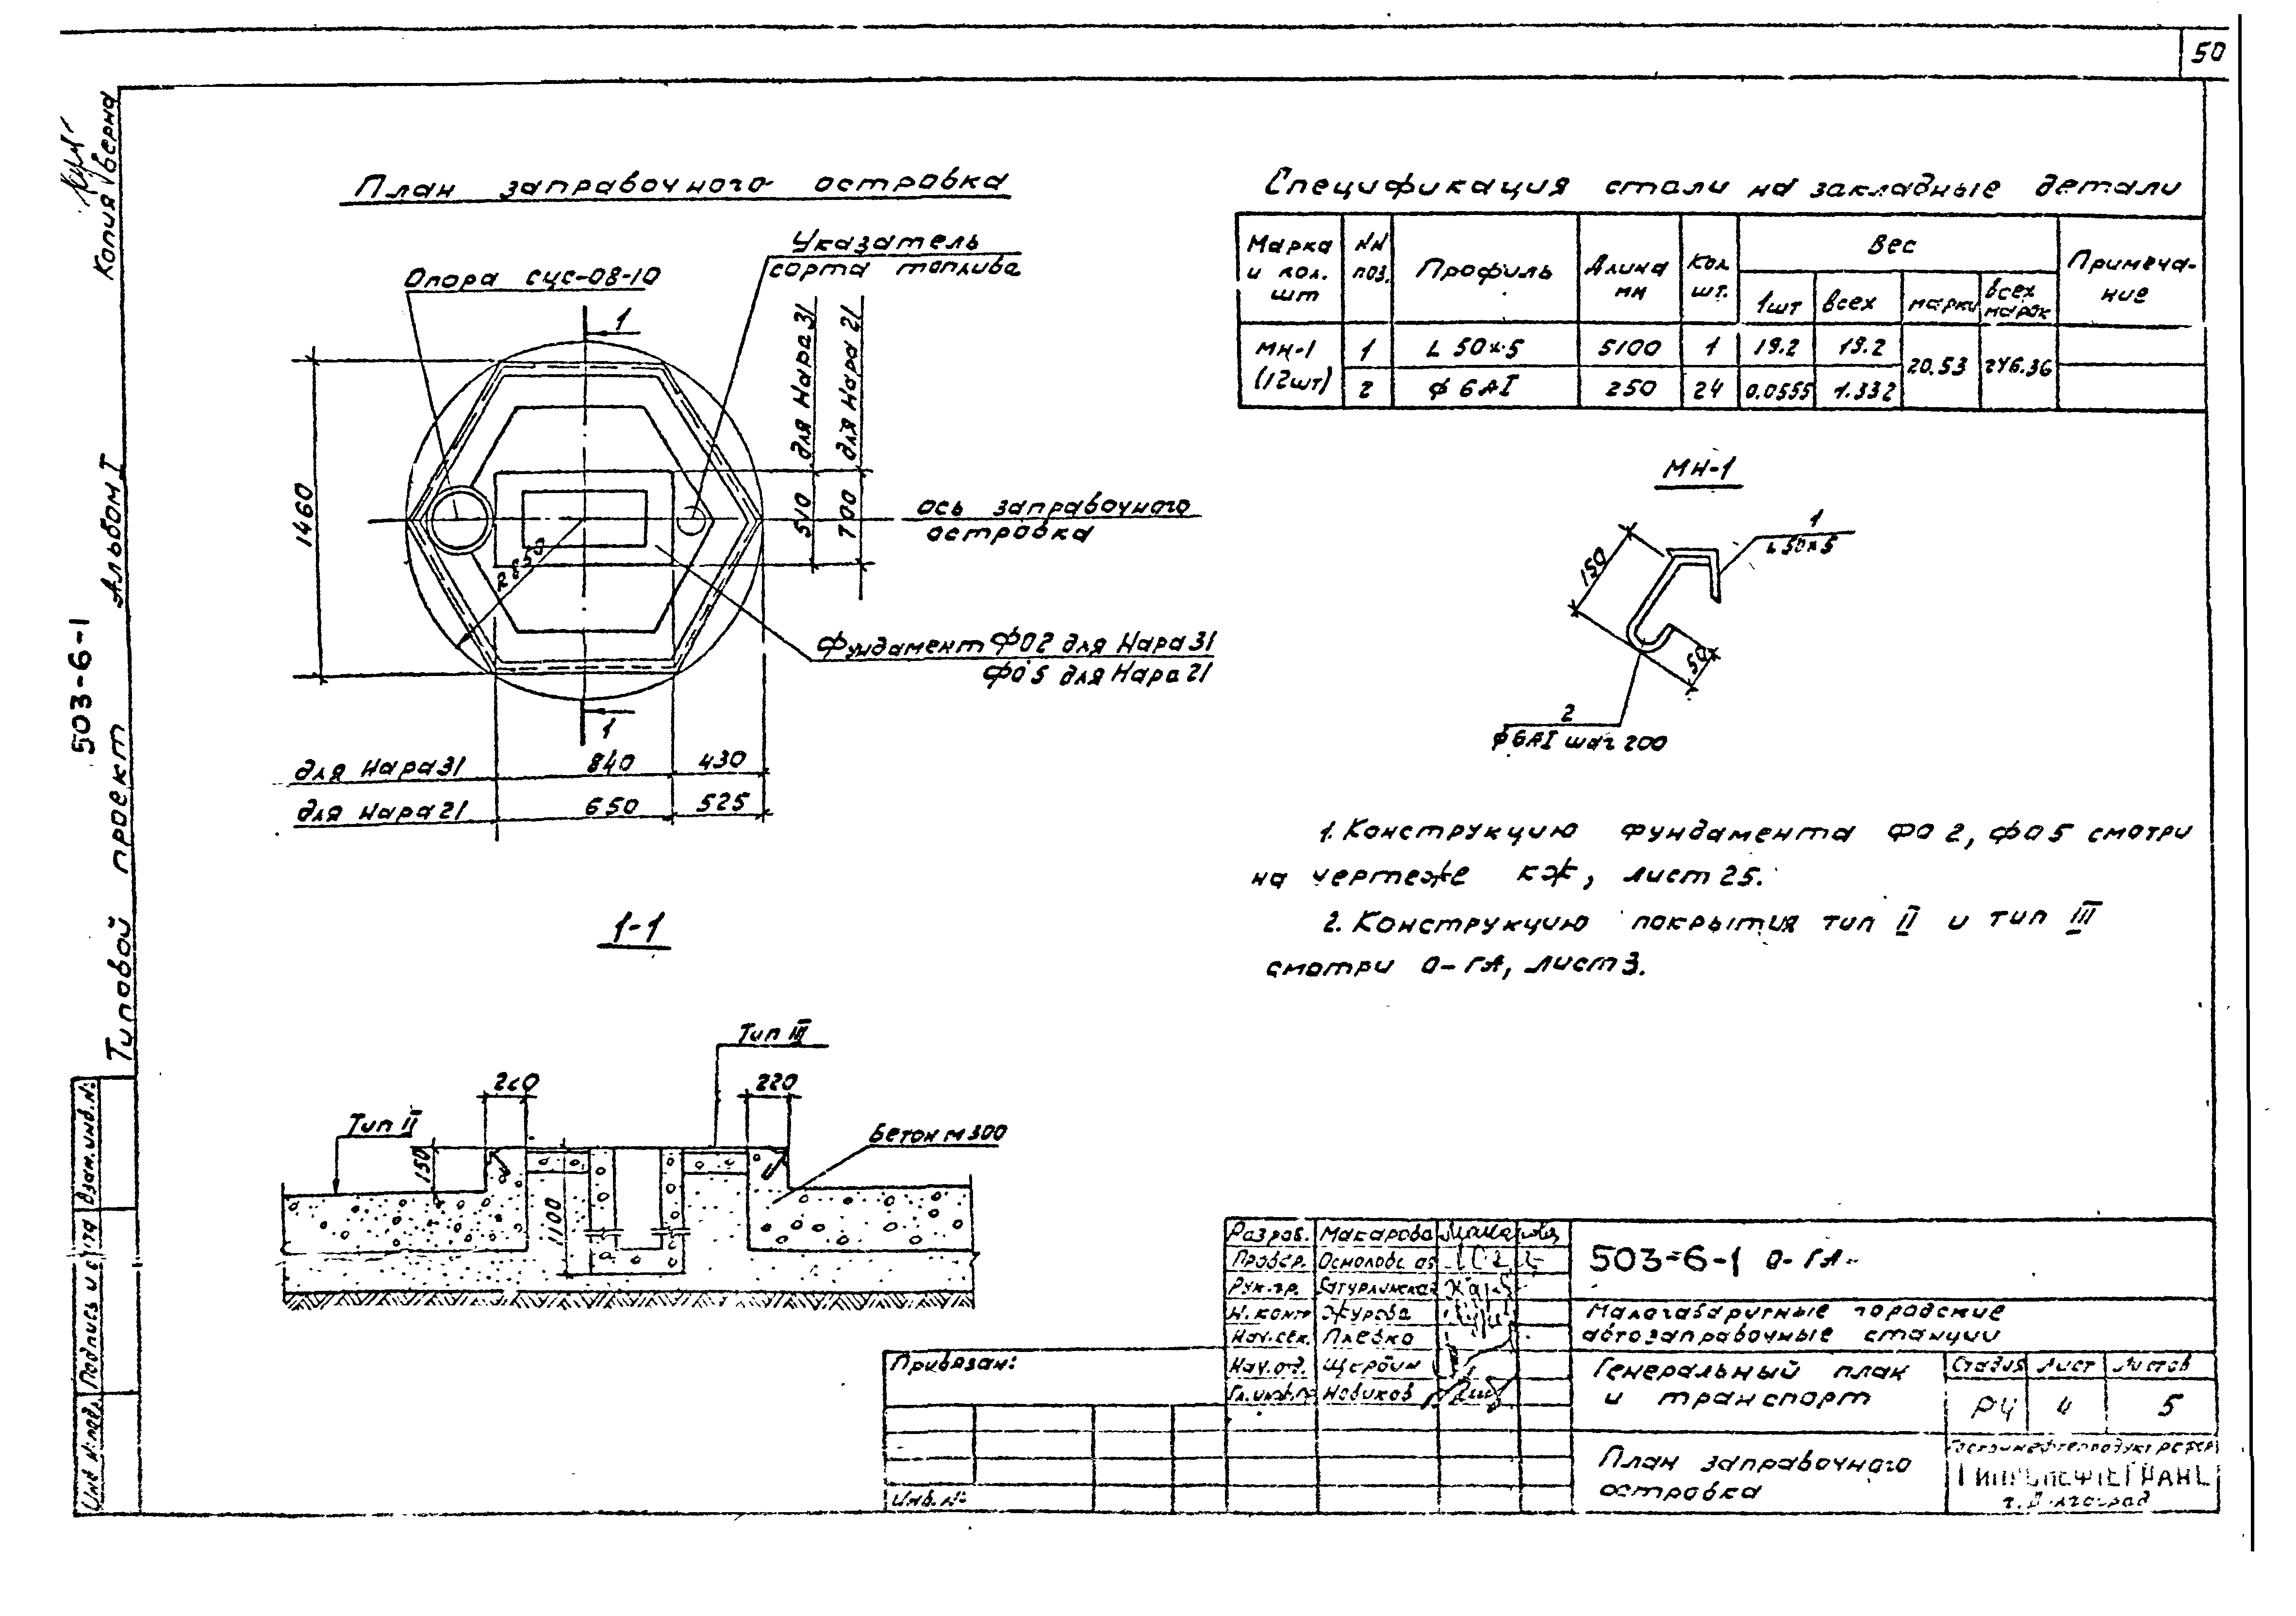 50
Копия верна
Типовой проект 503-6-1 Альбом I
План заправочного островка
Опора СЦС-08-10
Указатель
сорта топлива
1
для Нара 31
для Нара 21
1460
510
700
ось заправочного
островка
R 850
Фундамент ФО2 для Нара 31
ФО5 для Нара 21
1
для Нара 31 840 430
для Нара 21 650 525
1-1
Тип III
220
220
Тип II
150
Бетон М300
1100
Спецификация стали на закладные детали
Марка и кол. шт
NN поз.
Профиль
Длина мм
Кол. шт.
Вес
Примечание
1шт всех марки всех марок
МН-1 (12шт)
1 L 50×5 5100 1 19.2 19.2
20.53 246.36
2 ф 6АI 250 24 0.0555 1.332
МН-1
1
L 50×5
150
50
2
ф6АI шаг 200
1. Конструкцию фундамента ФО 2, ФО 5 смотри
на чертеже КЖ, лист 25.
2. Конструкцию покрытия тип II и тип III
смотри О-ГА, лист 3.
Взам. инв. N:
Подпись и дата
Инв N: подл.
Привязан:
Инв. N:
Разраб. Макарова
Провер.
Рук. гр.
Н. конт Журова
Нач. сек. Плевко
Нач. од. Щербин
Гл. инж. пр Новиков
503-6-1 О-ГА
Малогабаритные городские
автозаправочные станции
Генеральный план
и транспорт
Стадия Лист Листов
РЧ 4 5
План заправочного
островка
г. Волгоград